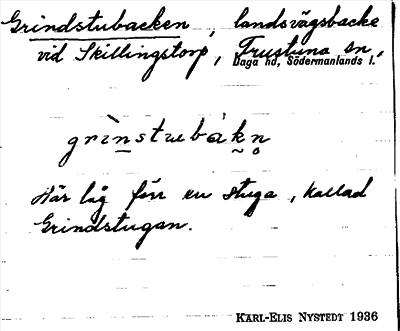 Grindstubacken, landsvägsbacke
vid Skillingstorp, Frustuna sn,
Daga hd, Södermanlands l.
grìnstubàkn̥
Här låg förr en stuga, kallad
Grindstugan.
KARL-ELIS NYSTEDT 1936